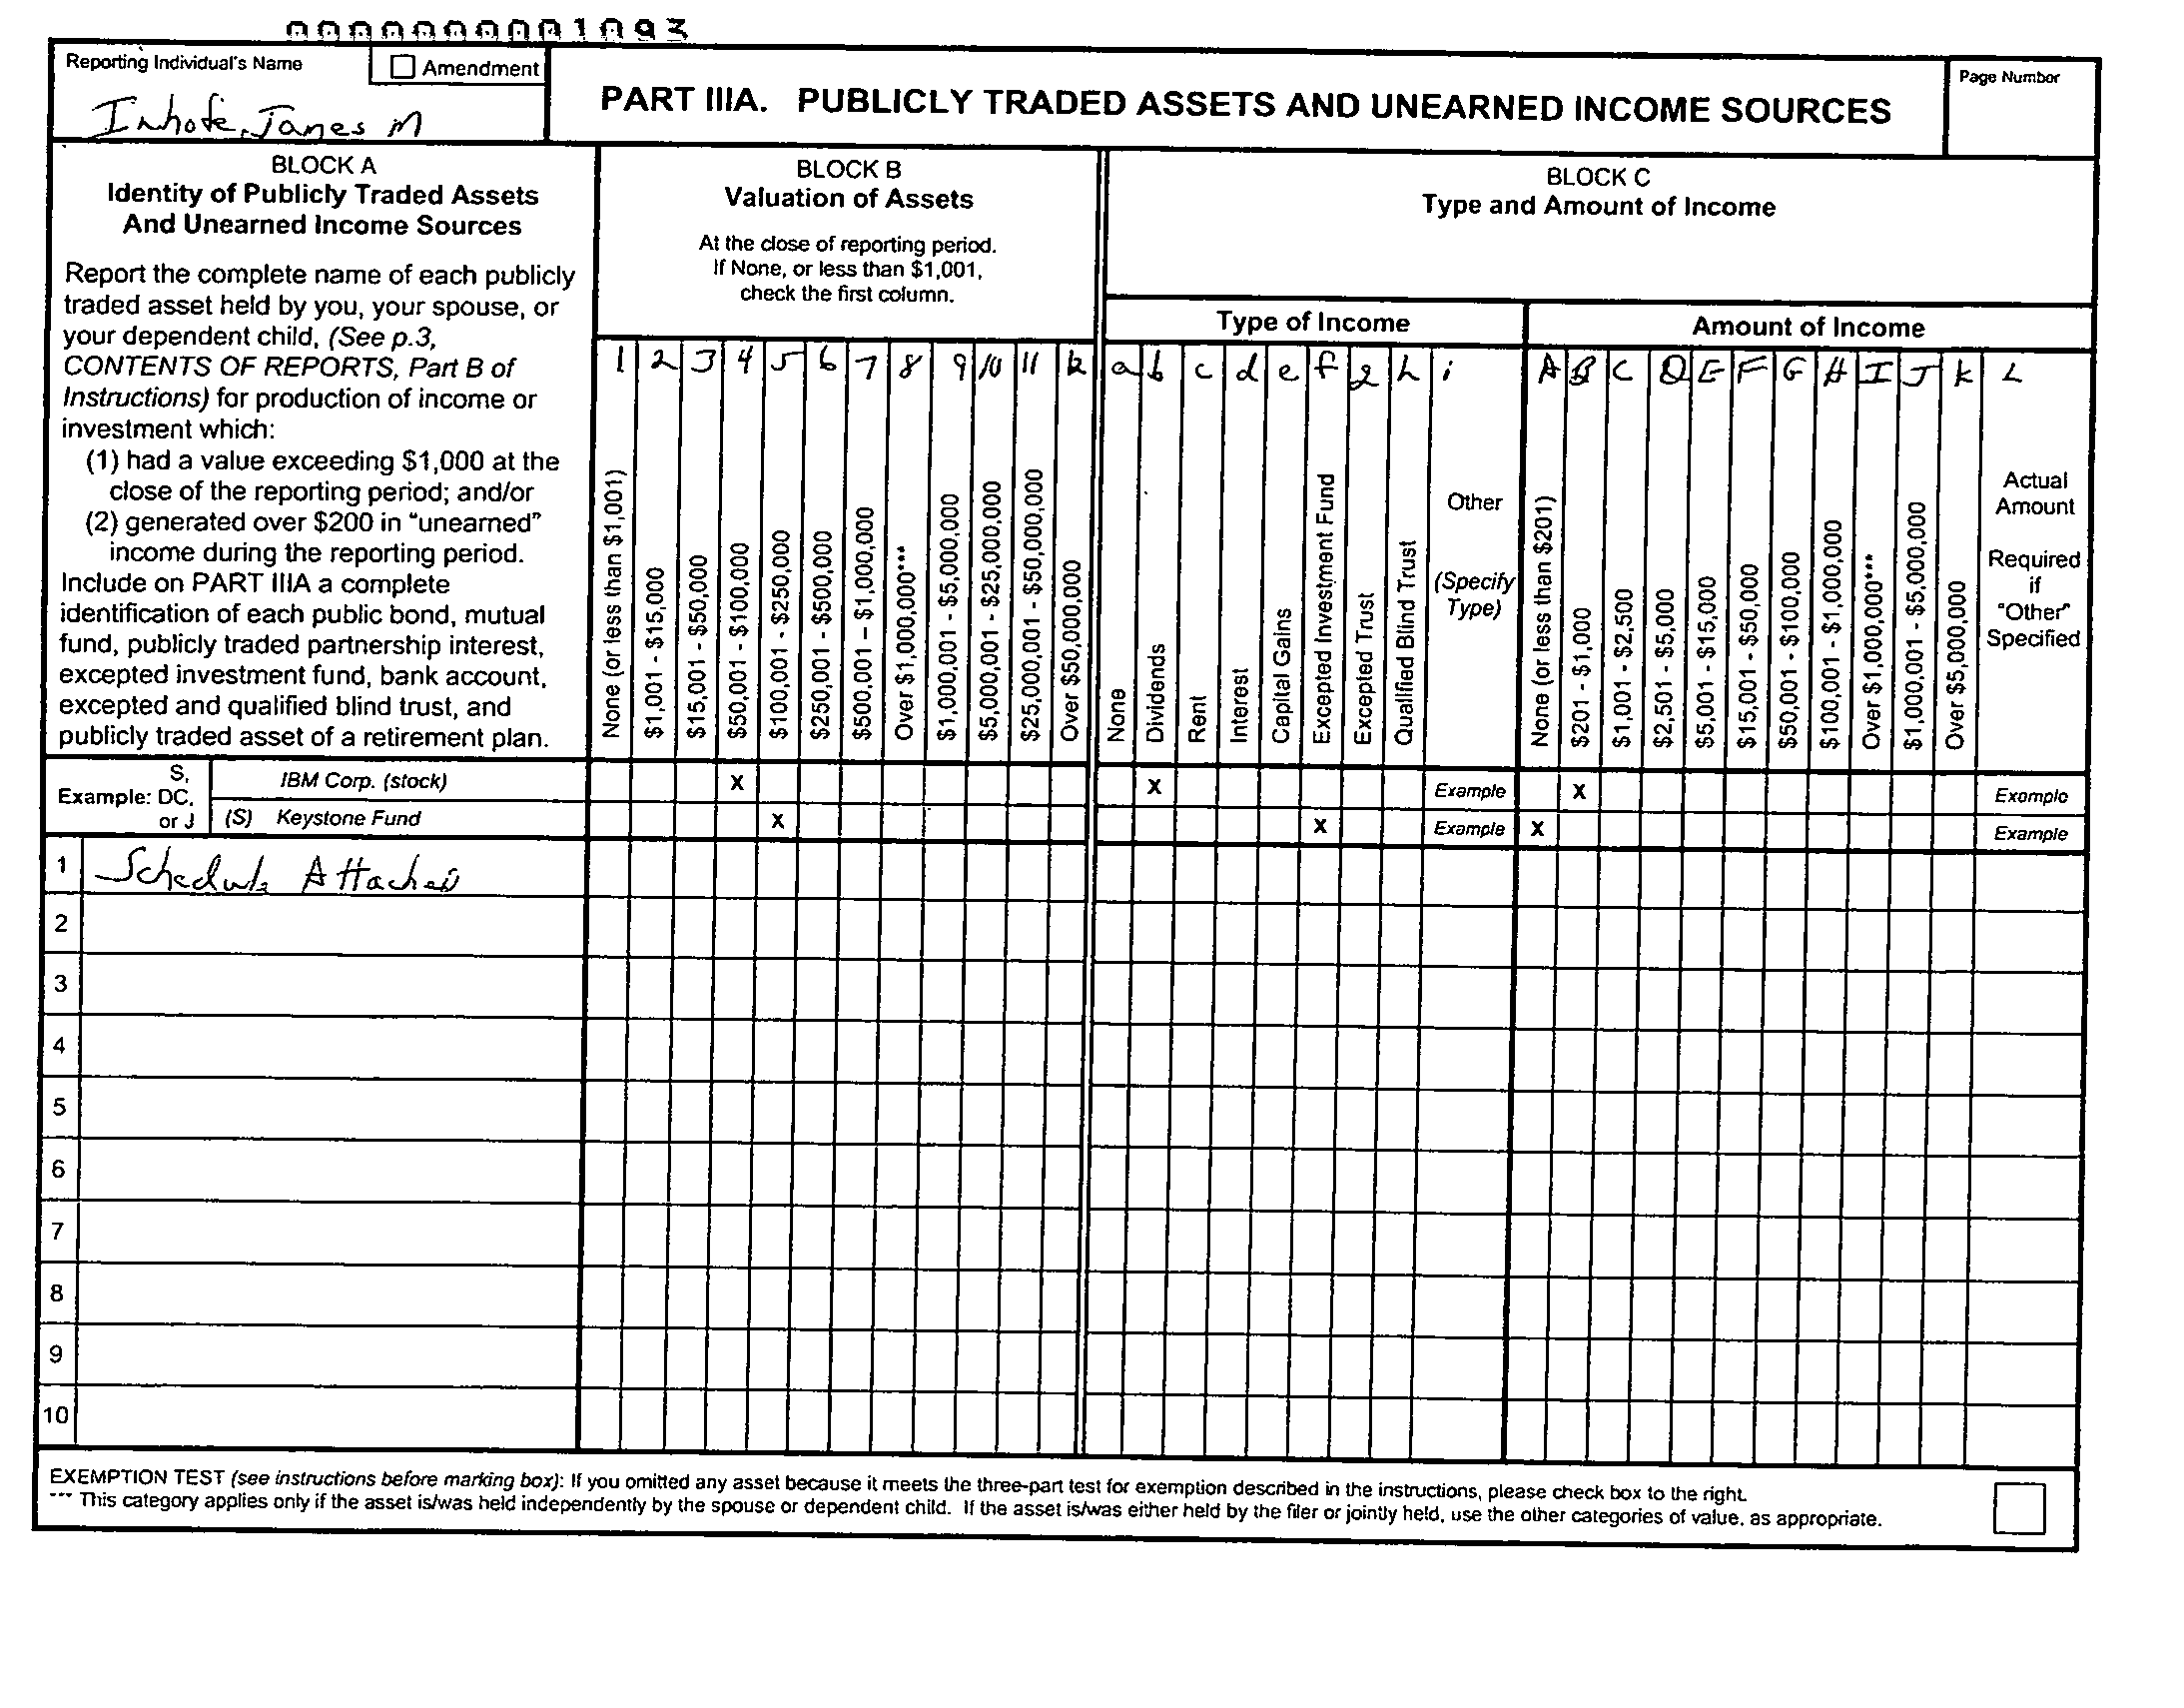 0000000001093
Reporting Individual's Name
Amendment
Inhofe, James M
PART IIIA. PUBLICLY TRADED ASSETS AND UNEARNED INCOME SOURCES
Page Number
BLOCK A
Identity of Publicly Traded Assets
And Unearned Income Sources
Report the complete name of each publicly
traded asset held by you, your spouse, or
your dependent child, (See p.3,
CONTENTS OF REPORTS, Part B of
Instructions) for production of income or
investment which:
(1) had a value exceeding $1,000 at the
close of the reporting period; and/or
(2) generated over $200 in "unearned"
income during the reporting period.
Include on PART IIIA a complete
identification of each public bond, mutual
fund, publicly traded partnership interest,
excepted investment fund, bank account,
excepted and qualified blind trust, and
publicly traded asset of a retirement plan.
BLOCK B
Valuation of Assets
At the close of reporting period.
If None, or less than $1,001,
check the first column.
1 2 3 4 5 6 7 8 9 10 11 k
None (or less than $1,001)
$1,001 - $15,000
$15,001 - $50,000
$50,001 - $100,000
$100,001 - $250,000
$250,001 - $500,000
$500,001 – $1,000,000
Over $1,000,000***
$1,000,001 - $5,000,000
$5,000,001 - $25,000,000
$25,000,001 - $50,000,000
Over $50,000,000
BLOCK C
Type and Amount of Income
Type of Income
a b c d e f g h i
None
Dividends
Rent
Interest
Capital Gains
Excepted Investment Fund
Excepted Trust
Qualified Blind Trust
Other
(Specify
Type)
Amount of Income
A B C D E F G H I J K L
None (or less than $201)
$201 - $1,000
$1,001 - $2,500
$2,501 - $5,000
$5,001 - $15,000
$15,001 - $50,000
$50,001 - $100,000
$100,001 - $1,000,000
Over $1,000,000***
$1,000,001 - $5,000,000
Over $5,000,000
Actual
Amount
Required
if
"Other"
Specified
Example:
S,
DC,
or J
IBM Corp. (stock) X X Example X Example
(S) Keystone Fund X X Example X Example
1 Schedule Attached
2
3
4
5
6
7
8
9
10
EXEMPTION TEST (see instructions before marking box): If you omitted any asset because it meets the three-part test for exemption described in the instructions, please check box to the right.
*** This category applies only if the asset is/was held independently by the spouse or dependent child. If the asset is/was either held by the filer or jointly held, use the other categories of value, as appropriate.